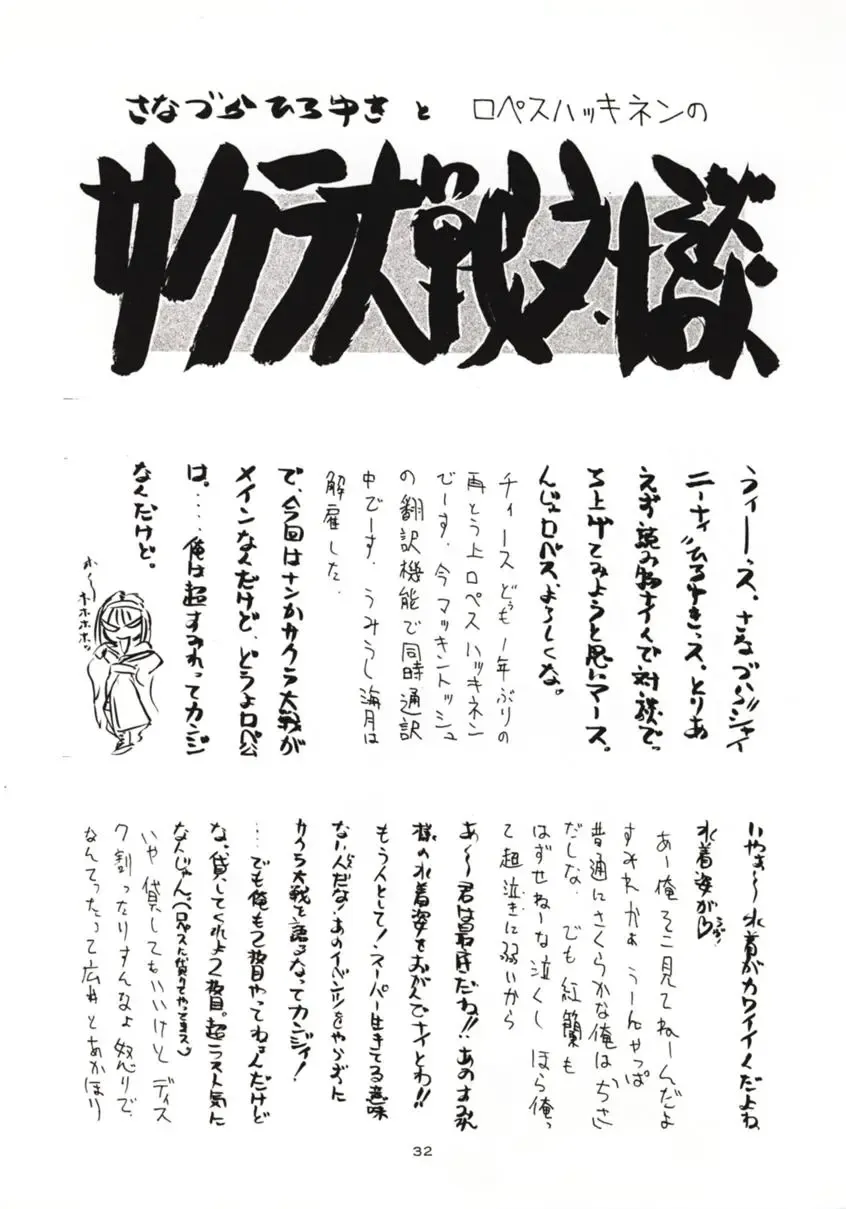 さなづらひろゆきと ロペスハッキネンの
サクラ大戦対談
うぃーース。さなづら"ジャイ
ニーナィ"ひろゆきっス。とりあ
えず読み物ナイんで対談で。
ち上げてみようと思いマース。
んじゃロペス、よろしくな。
チィース どぅも1年ぶりの
再とう上ロペスハッキネン
でーす。今マッキントッシュ
の翻訳機能で同時通訳
中でーす。うみうし海月は
解雇した。
で、今回はナンかサクラ大戦が
メインなんだけど、どうよロペ公
は。‥‥俺は超すみれってカンジ
なんだけど。
ホホホホ。
いやぁ〜水着がカワイイんだよね
水着姿が♡
あー俺そこ見てねーんだよ
すみれかぁ うーんやっぱ
普通にさくらかな俺は
だしな。でも紅蘭も
はずせねーな泣くし ほら俺っ
て超泣きに弱いから
あ〜〜君は最底だね!!あのすみれ
様の水着姿をおがんでナイとわ!!
もう人として!スーパー生きてる意味
ないんだな!あのイベンツをやらずに
サクラ大戦を語るなってカンジィ!
‥‥でも俺もう2枚目やってねぇんだけど
な。貸してくれよ2枚目。超ラスト気に
なんじゃん。(ロペスに貸りてやってマス)
いや 貸してもいいけど ディス
ク割ったりすんなよ 怒りで。
なんてったって広井とあかほり
32